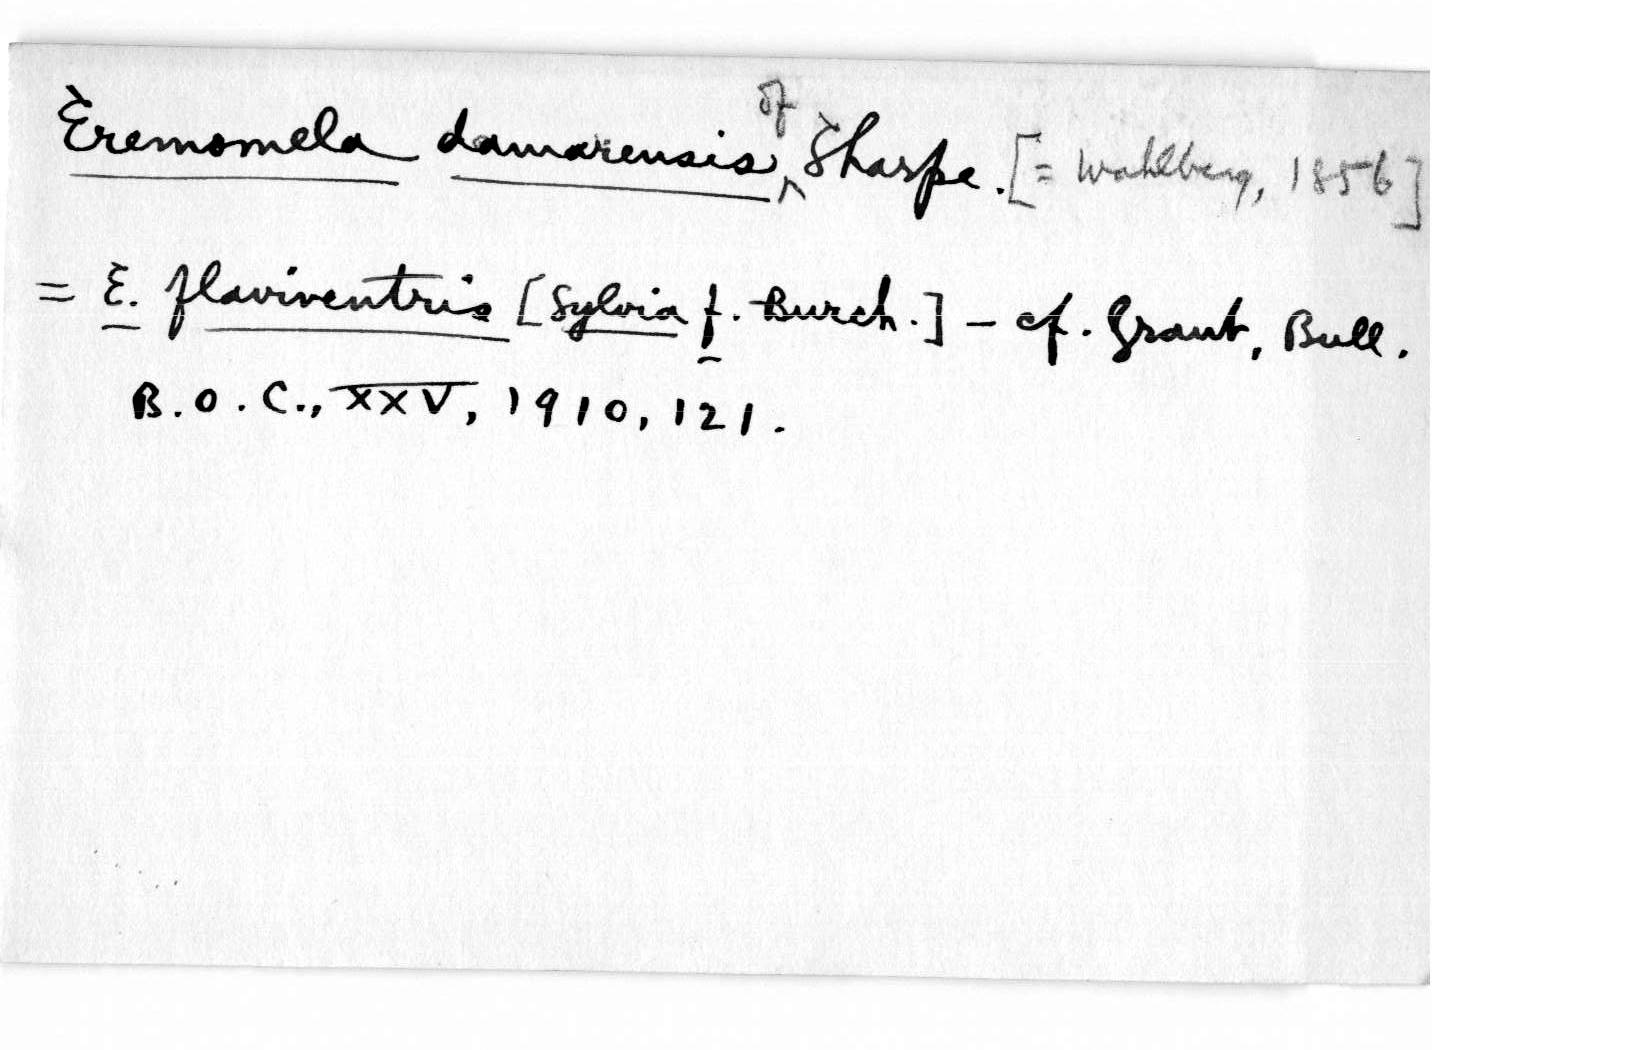 Eremomela damarensis of Sharpe. [= Wahlberg, 1856]
= E. flaviventris [Sylvia f. Burch.] – cf. Grant, Bull.
B.O.C., XXV, 1910, 121.